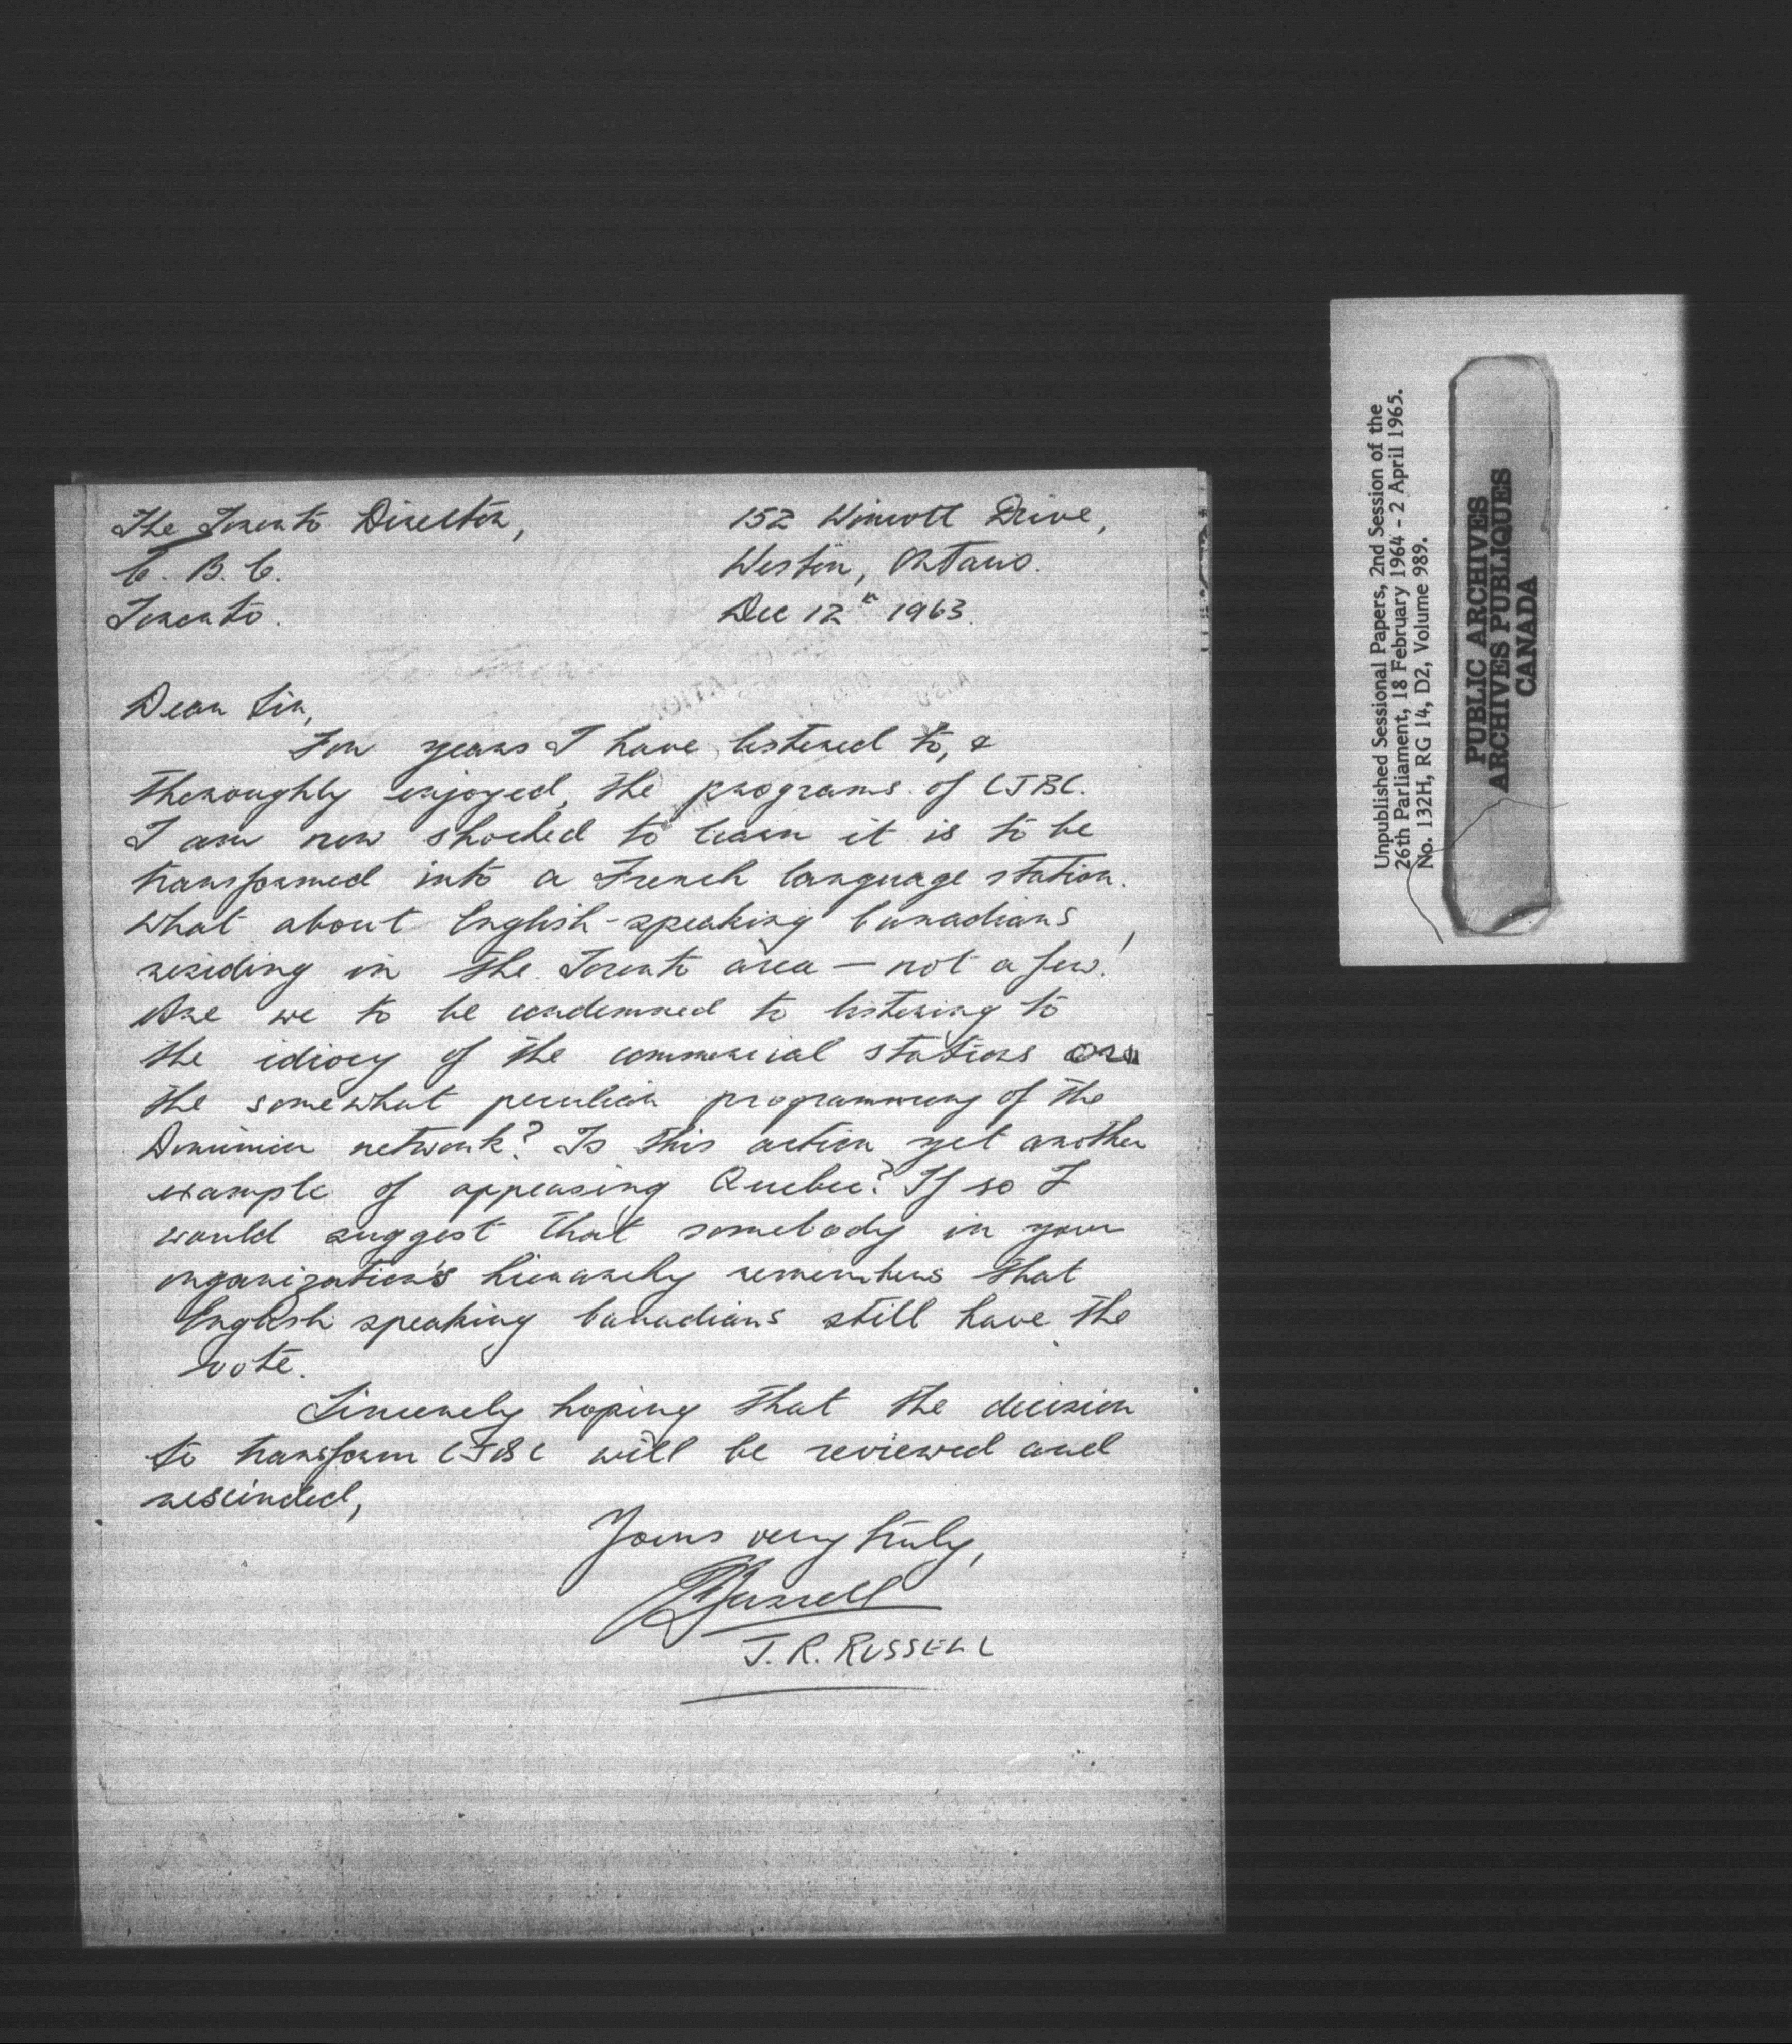 The Toronto Director,
C. B. C.
Toronto.
152 Wincott Drive,
Weston, Ontario.
Dec 12th 1963.
Dear Sir,
For years I have listened to, &
thoroughly enjoyed, the programs of CJBC.
I am now shocked to learn it is to be
transformed into a French language station.
What about English-speaking Canadians
residing in the Toronto area — not a few!
Are we to be condemned to listening to
the idiocy of the commercial stations or
the somewhat peculiar programming of the
Dominion network? Is this action yet another
example of appeasing Quebec? If so I
would suggest that somebody in your
organization's hierarchy remembers that
English speaking Canadians still have the
vote.
Sincerely hoping that the decision
to transform CJBC will be reviewed and
rescinded,
Yours very truly,
JRussell
J. R. RUSSELL
Unpublished Sessional Papers, 2nd Session of the
26th Parliament, 18 February 1964 - 2 April 1965.
No. 132H, RG 14, D2, Volume 989.
PUBLIC ARCHIVES
ARCHIVES PUBLIQUES
CANADA